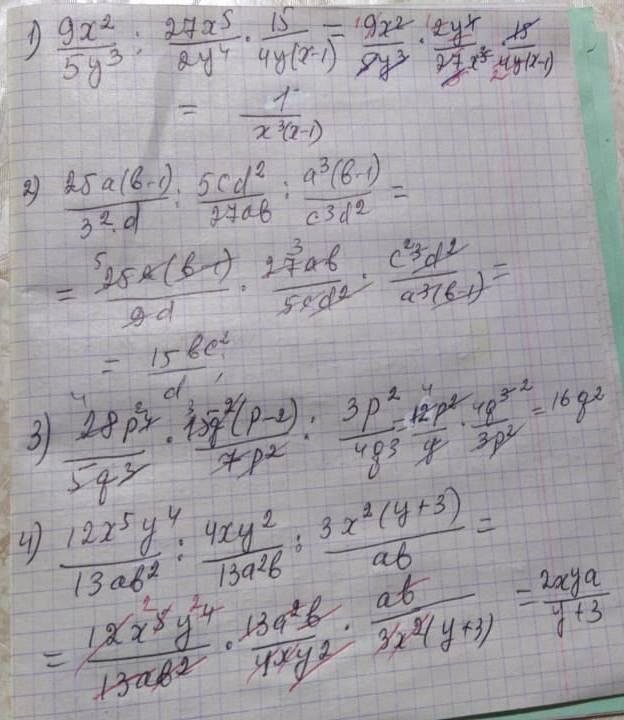 1) 9x²/5y³ : 27x⁵/2y⁴ · 15/4y(x-1) = 9x²/5y³ · 2y⁴/27x⁵ · 15/4y(x-1)
= 1/x³(x-1)
2) 25a(b-1)/3²·d : 5cd²/27ab : a³(b-1)/c³d² =
= 25a(b-1)/9d · 27ab/5cd² · c³d²/a³(b-1) =
= 15bc²/d
3) 28p⁴/5q³ · 15q²(p-2)/7p² : 3p²/4q³ = 12p²/q · 4q³/3p² = 16q²
4) 12x⁵y⁴/13ab² : 4xy²/13a²b : 3x²(y+3)/ab =
= 12x⁵y⁴/13ab² · 13a²b/4xy² · ab/3x²(y+3) = 2xya/y+3